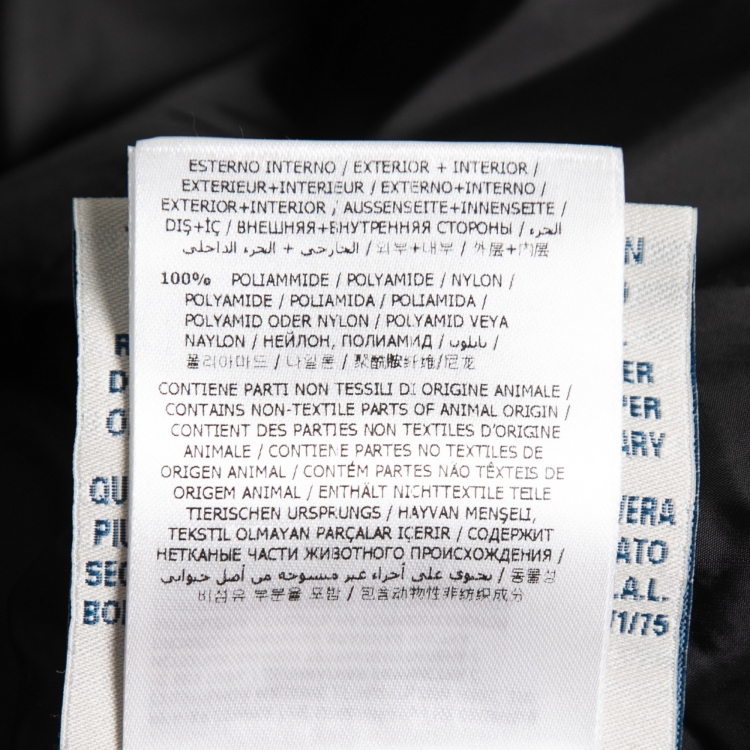 ESTERNO INTERNO / EXTERIOR + INTERIOR /
EXTERIEUR+INTERIEUR / EXTERNO+INTERNO /
EXTERIOR+INTERIOR / AUSSENSEITE+INNENSEITE /
DIŞ+İÇ / ВНЕШНЯЯ+ВНУТРЕННЯЯ СТОРОНЫ / الجزء
الخارجي + الجزء الداخلي / 외부+내부 / 外层+内层
100% POLIAMMIDE / POLYAMIDE / NYLON /
POLYAMIDE / POLIAMIDA / POLIAMIDA /
POLYAMID ODER NYLON / POLYAMID VEYA
NAYLON / НЕЙЛОН, ПОЛИАМИД / نايلون /
폴리아마드 / 나일론 / 聚酰胺纤维/尼龙
CONTIENE PARTI NON TESSILI DI ORIGINE ANIMALE /
CONTAINS NON-TEXTILE PARTS OF ANIMAL ORIGIN /
CONTIENT DES PARTIES NON TEXTILES D'ORIGINE
ANIMALE / CONTIENE PARTES NO TEXTILES DE
ORIGEN ANIMAL / CONTÉM PARTES NÃO TÊXTEIS DE
ORIGEM ANIMAL / ENTHÄLT NICHTTEXTILE TEILE
TIERISCHEN URSPRUNGS / HAYVAN MENŞELİ,
TEKSTIL OLMAYAN PARÇALAR İÇERIR / СОДЕРЖИТ
НЕТКАНЫЕ ЧАСТИ ЖИВОТНОГО ПРОИСХОЖДЕНИЯ /
يحتوي على أجزاء غير منسوجه من أصل حيواني / 동물성
비섬유 부분을 포함 / 包含动物性非纺织成分
QU
VERA
PIU
ATO
SEC
.A.L.
BO
1/75
ER
PER
ARY